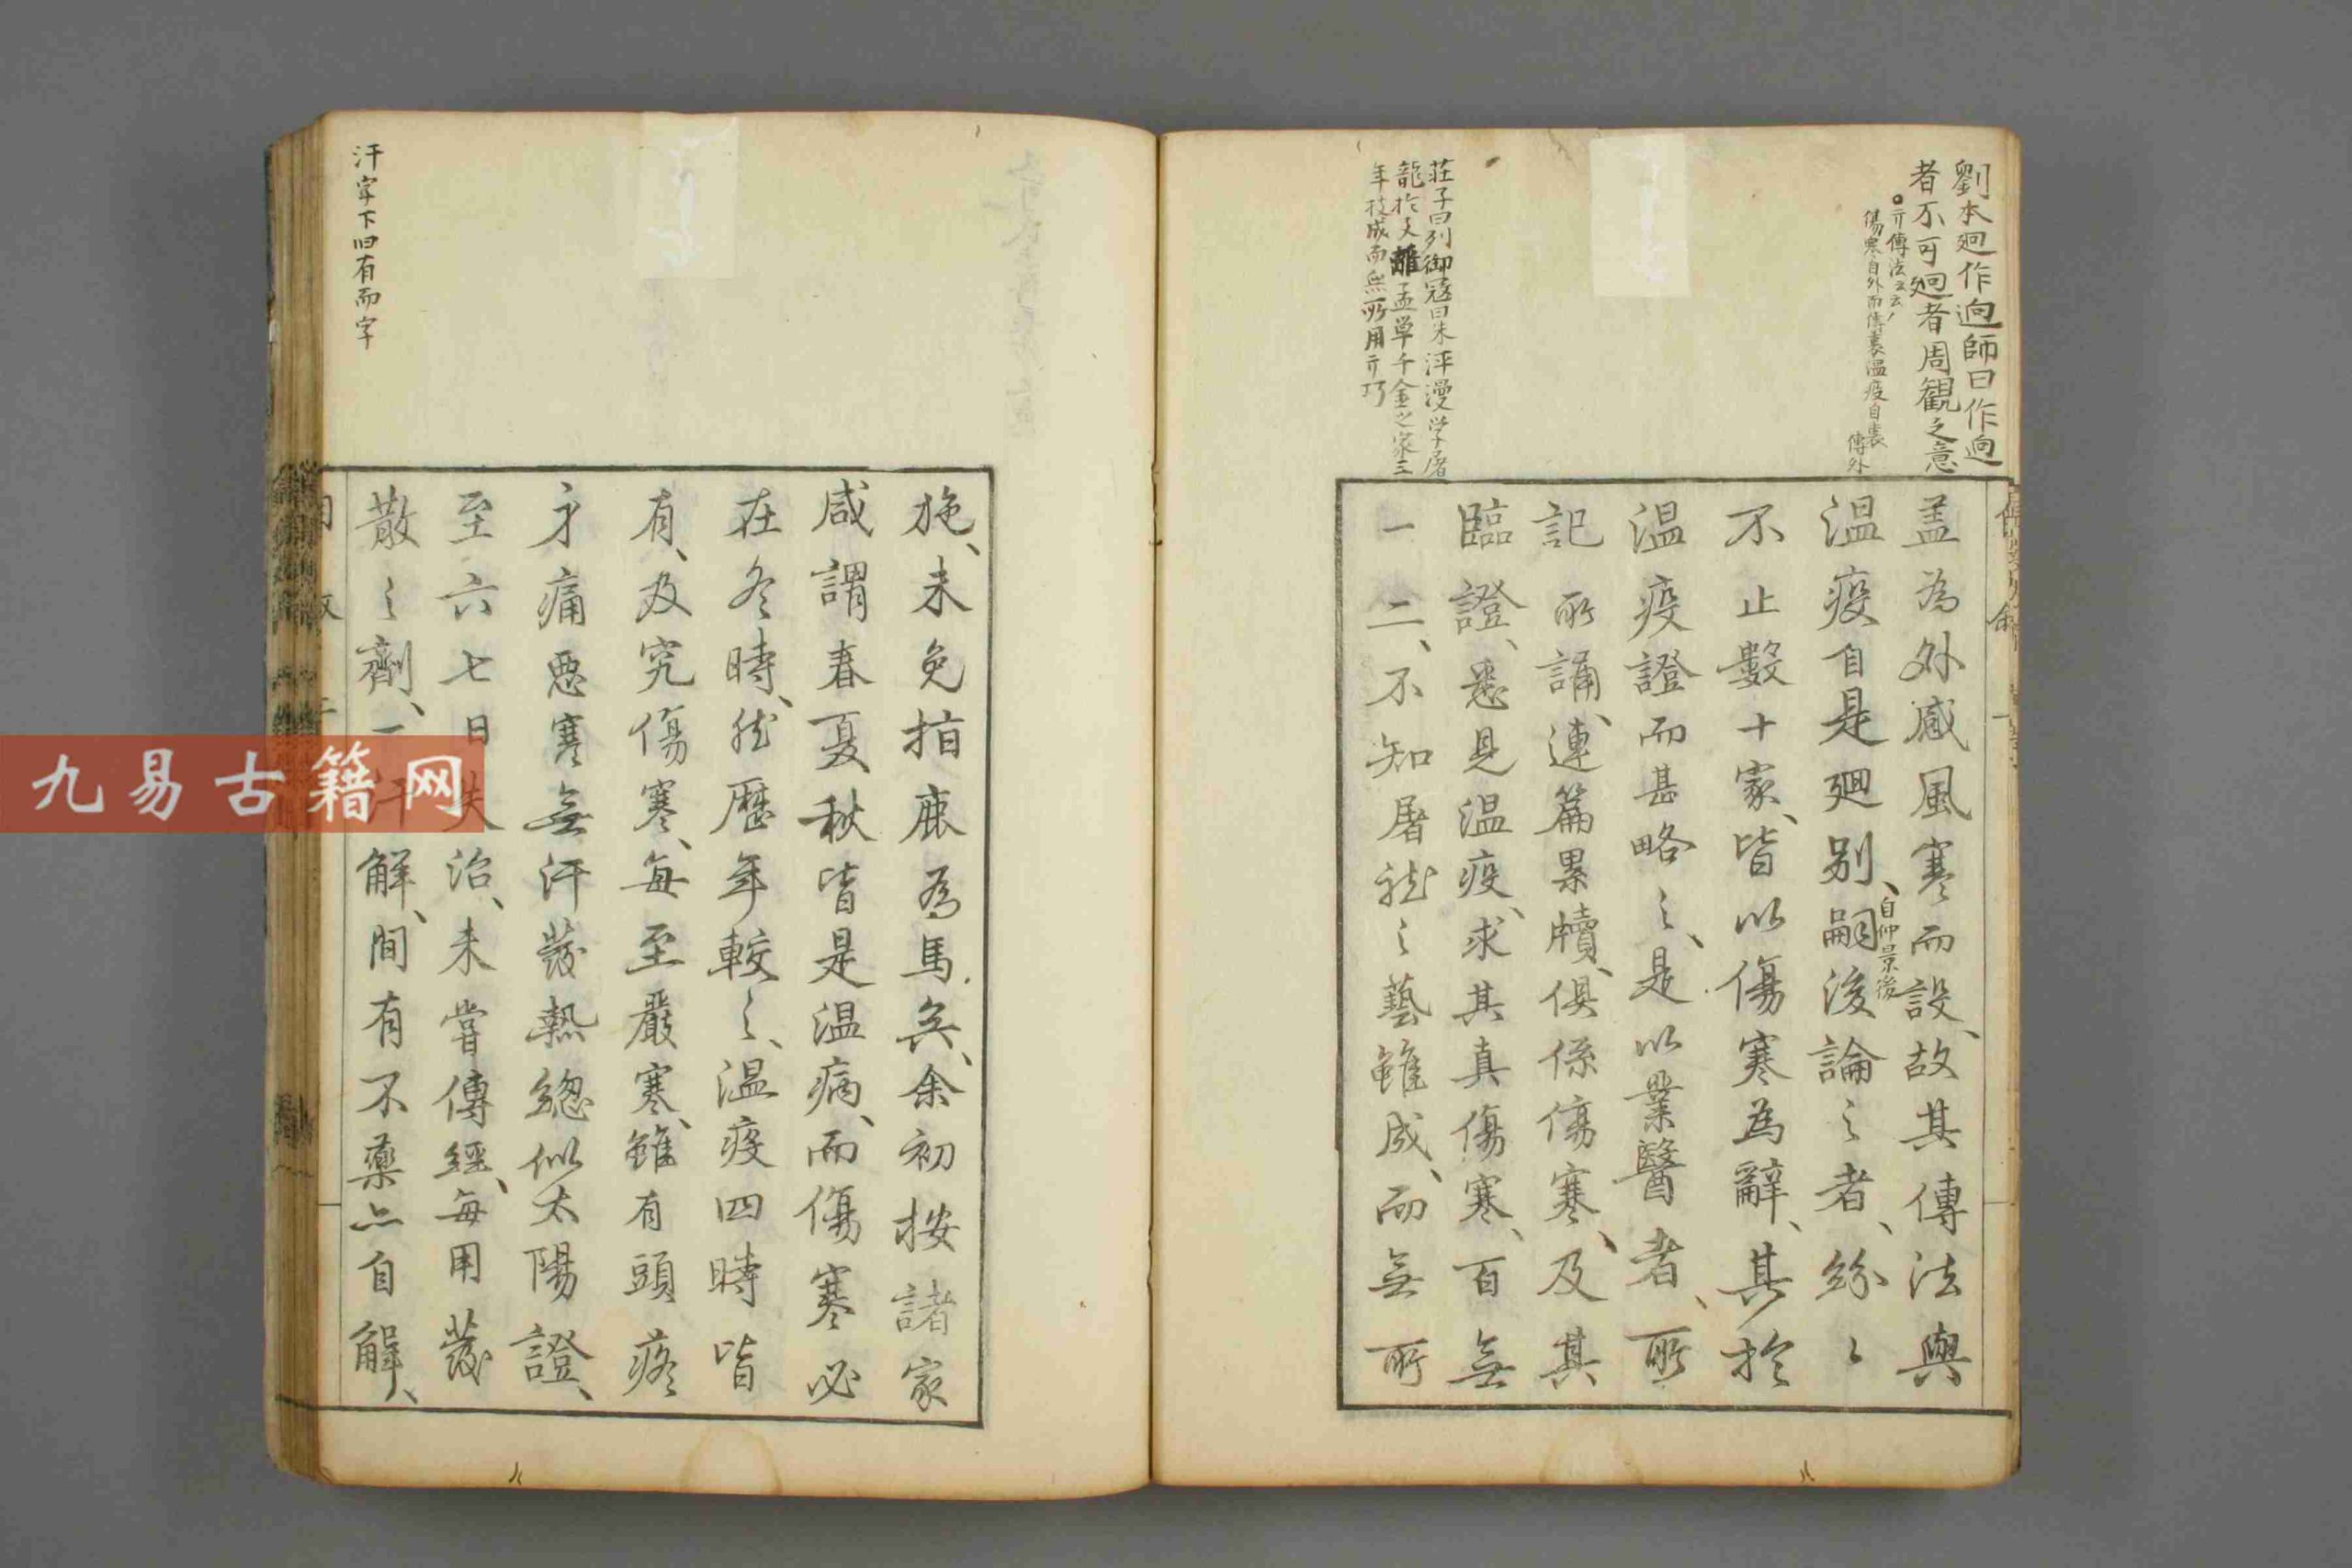 劉本迴作逈師曰作逈
者不可迴者周観之意
傷寒自外而傳裏温疫自裏
傳外
莊子曰列御寇曰朱泙漫学屠
龍於支離益単千金之家三
年技成而無所用亓巧
盖為外感風寒而設、故其傳法與
温疫自是迴别、嗣後論之者、紛〻
自仲景後
不止數十家、皆以傷寒為辭、其於
温疫證而甚略之、是以業醫者、所
記所誦、連篇累牘、俱係傷寒、及其
臨證、悉見温疫、求其真傷寒、百無
一二、不知屠龍之藝雖成、而無所
施、未免指鹿為馬矣、余初按諸家
咸謂春夏秋皆是温病、而傷寒必
在冬時、然歷年較之、温疫四時皆
有、及究傷寒、每至嚴寒、雖有頭疼
身痛惡寒無汗發熱總似太陽證、
至六七日失治、未嘗傳經、每用發
散之劑、一汗解、間有不藥亦自解、
汗字下旧有而字
九易古籍网